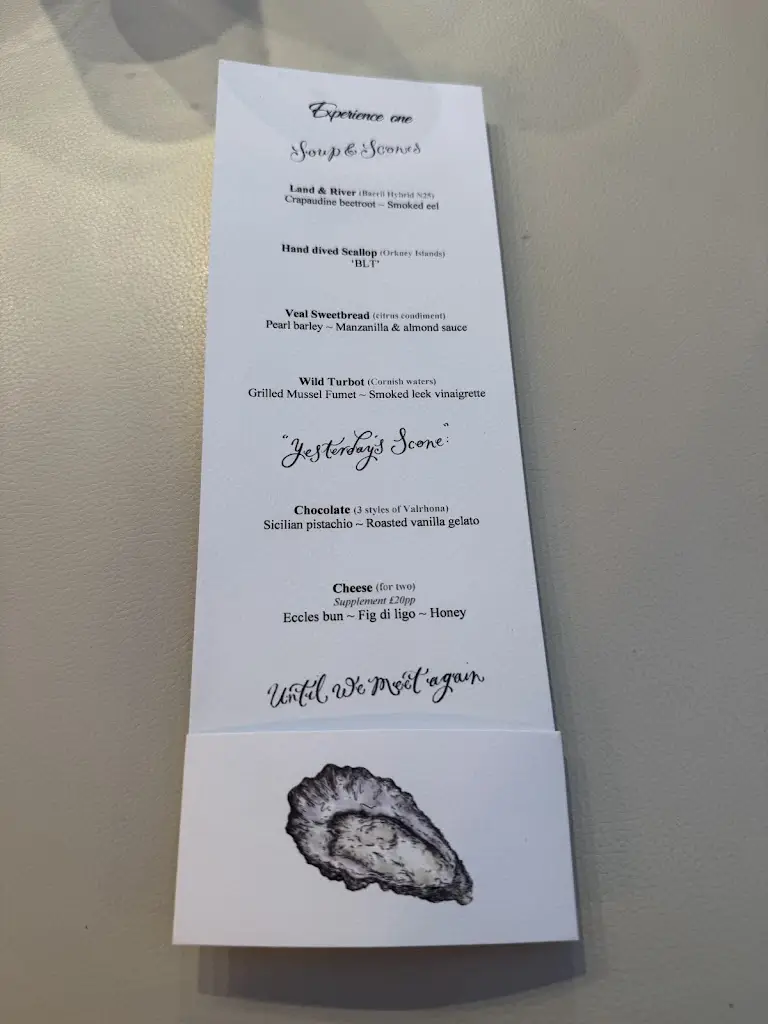 Experience one
Soup & Scones
Land & River (Baerii Hybrid N25)
Crapaudine beetroot ~ Smoked eel
Hand dived Scallop (Orkney Islands)
'BLT'
Veal Sweetbread (citrus condiment)
Pearl barley ~ Manzanilla & almond sauce
Wild Turbot (Cornish waters)
Grilled Mussel Fumet ~ Smoked leek vinaigrette
"Yesterday's Scone"
Chocolate (3 styles of Valrhona)
Sicilian pistachio ~ Roasted vanilla gelato
Cheese (for two)
Supplement £20pp
Eccles bun ~ Fig di ligo ~ Honey
Until We Meet again